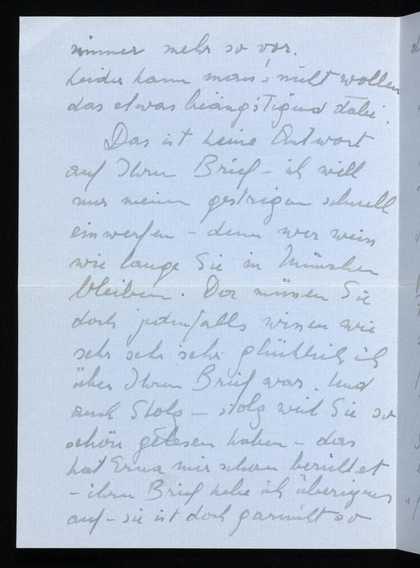 nimmer mehr so vor.
Leider kann man's nicht wollen
das etwas beängstigend dabei.
Das ist keine Antwort
auf Ihren Brief – ich will
nur meinen gestrigen schnell
einwerfen – denn wer weiss
wie lange Sie in München
bleiben. Da müssen Sie
doch jedenfalls wissen wie
sehr sehr sehr glücklich ich
über Ihren Brief war. Und
auch Stolz – stolz weil Sie so
schön gelesen haben – das
hat Erna mir schon berichtet
– ihren Brief hebe ich übrigens
auf – sie ist doch garnicht so